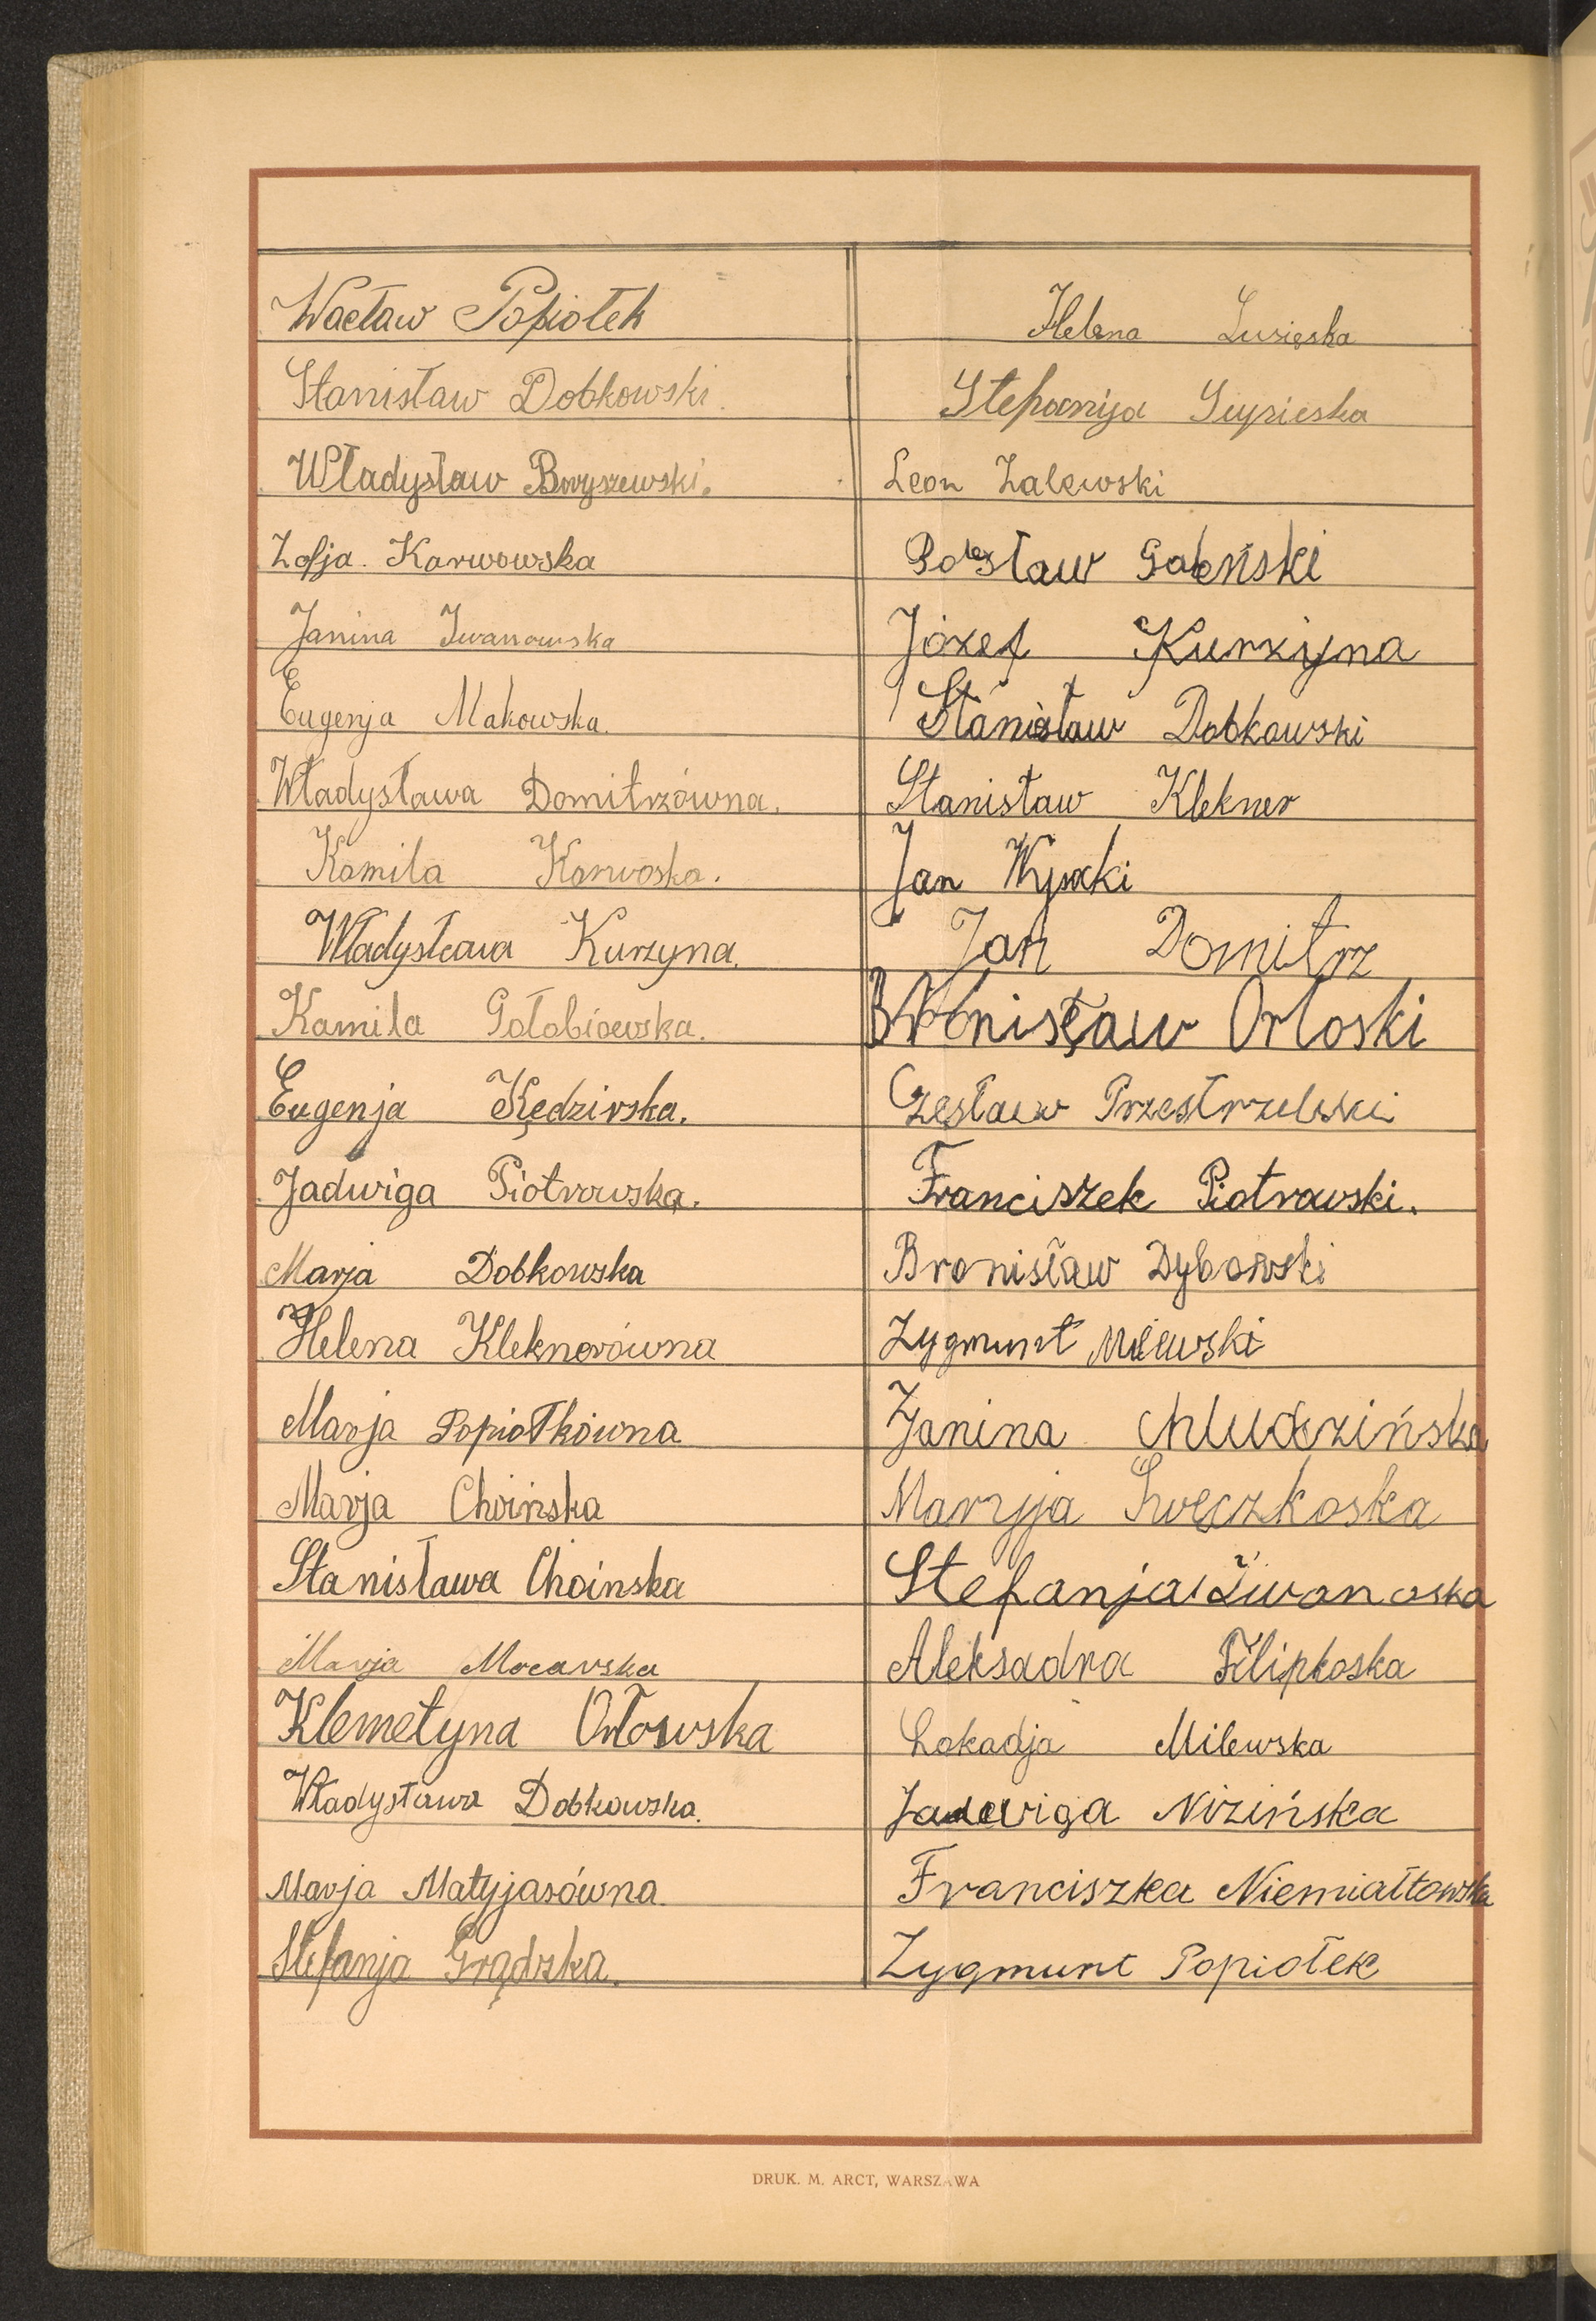 Wacław Popiołek
Stanisław Dobkowski.
Władysław Boryszewski.
Zofja. Karwowska
Janina Iwanowska
Eugenja Makowska.
Władysława Domitrzówna.
Kamila Karwoska.
Władysława Kurzyna.
Kamila Gołobiowska.
Eugenja Kędzirska.
Jadwiga Piotrowska.
Marja Dobkowska
Helena Kleknerówna
Marja Popiołkówna
Marja Choińska
Stanisława Choinska
Marja Mocarska
Klemetyna Orłowska
Władysława Dobkowska.
Marja Matyjasówna.
Stefanja Grądzka.
Helena
Stefanija
Leon Zalewski
Józef Kurzyna
Stanisław Dobkowski
Stanisław Klekner
Jan Wysocki
Jan Domitrz
Bronisław Orłoski
Czesław Przestrzelski
Franciszek Piotrowski.
Bronisław Dyborski
Zygmunt Milewski
Janina Chludzińska
Maryja
Stefanja Iwanoska
Aleksadra Filipkoska
Lokadja Milewska
Jadwiga Nizińska
Franciszka Niemiałtowska
Zygmunt Popiołek
DRUK. M. ARCT, WARSZAWA